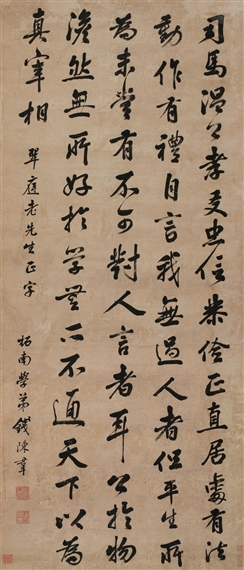 司馬溫公孝友忠信恭儉正直居處有法
動作有禮自言我無過人者但平生所
為未嘗有不可對人言者耳公於物
澹然無所好於學無所不通天下以為
真宰相
翠庭老先生正字
柘南學弟錢陳羣